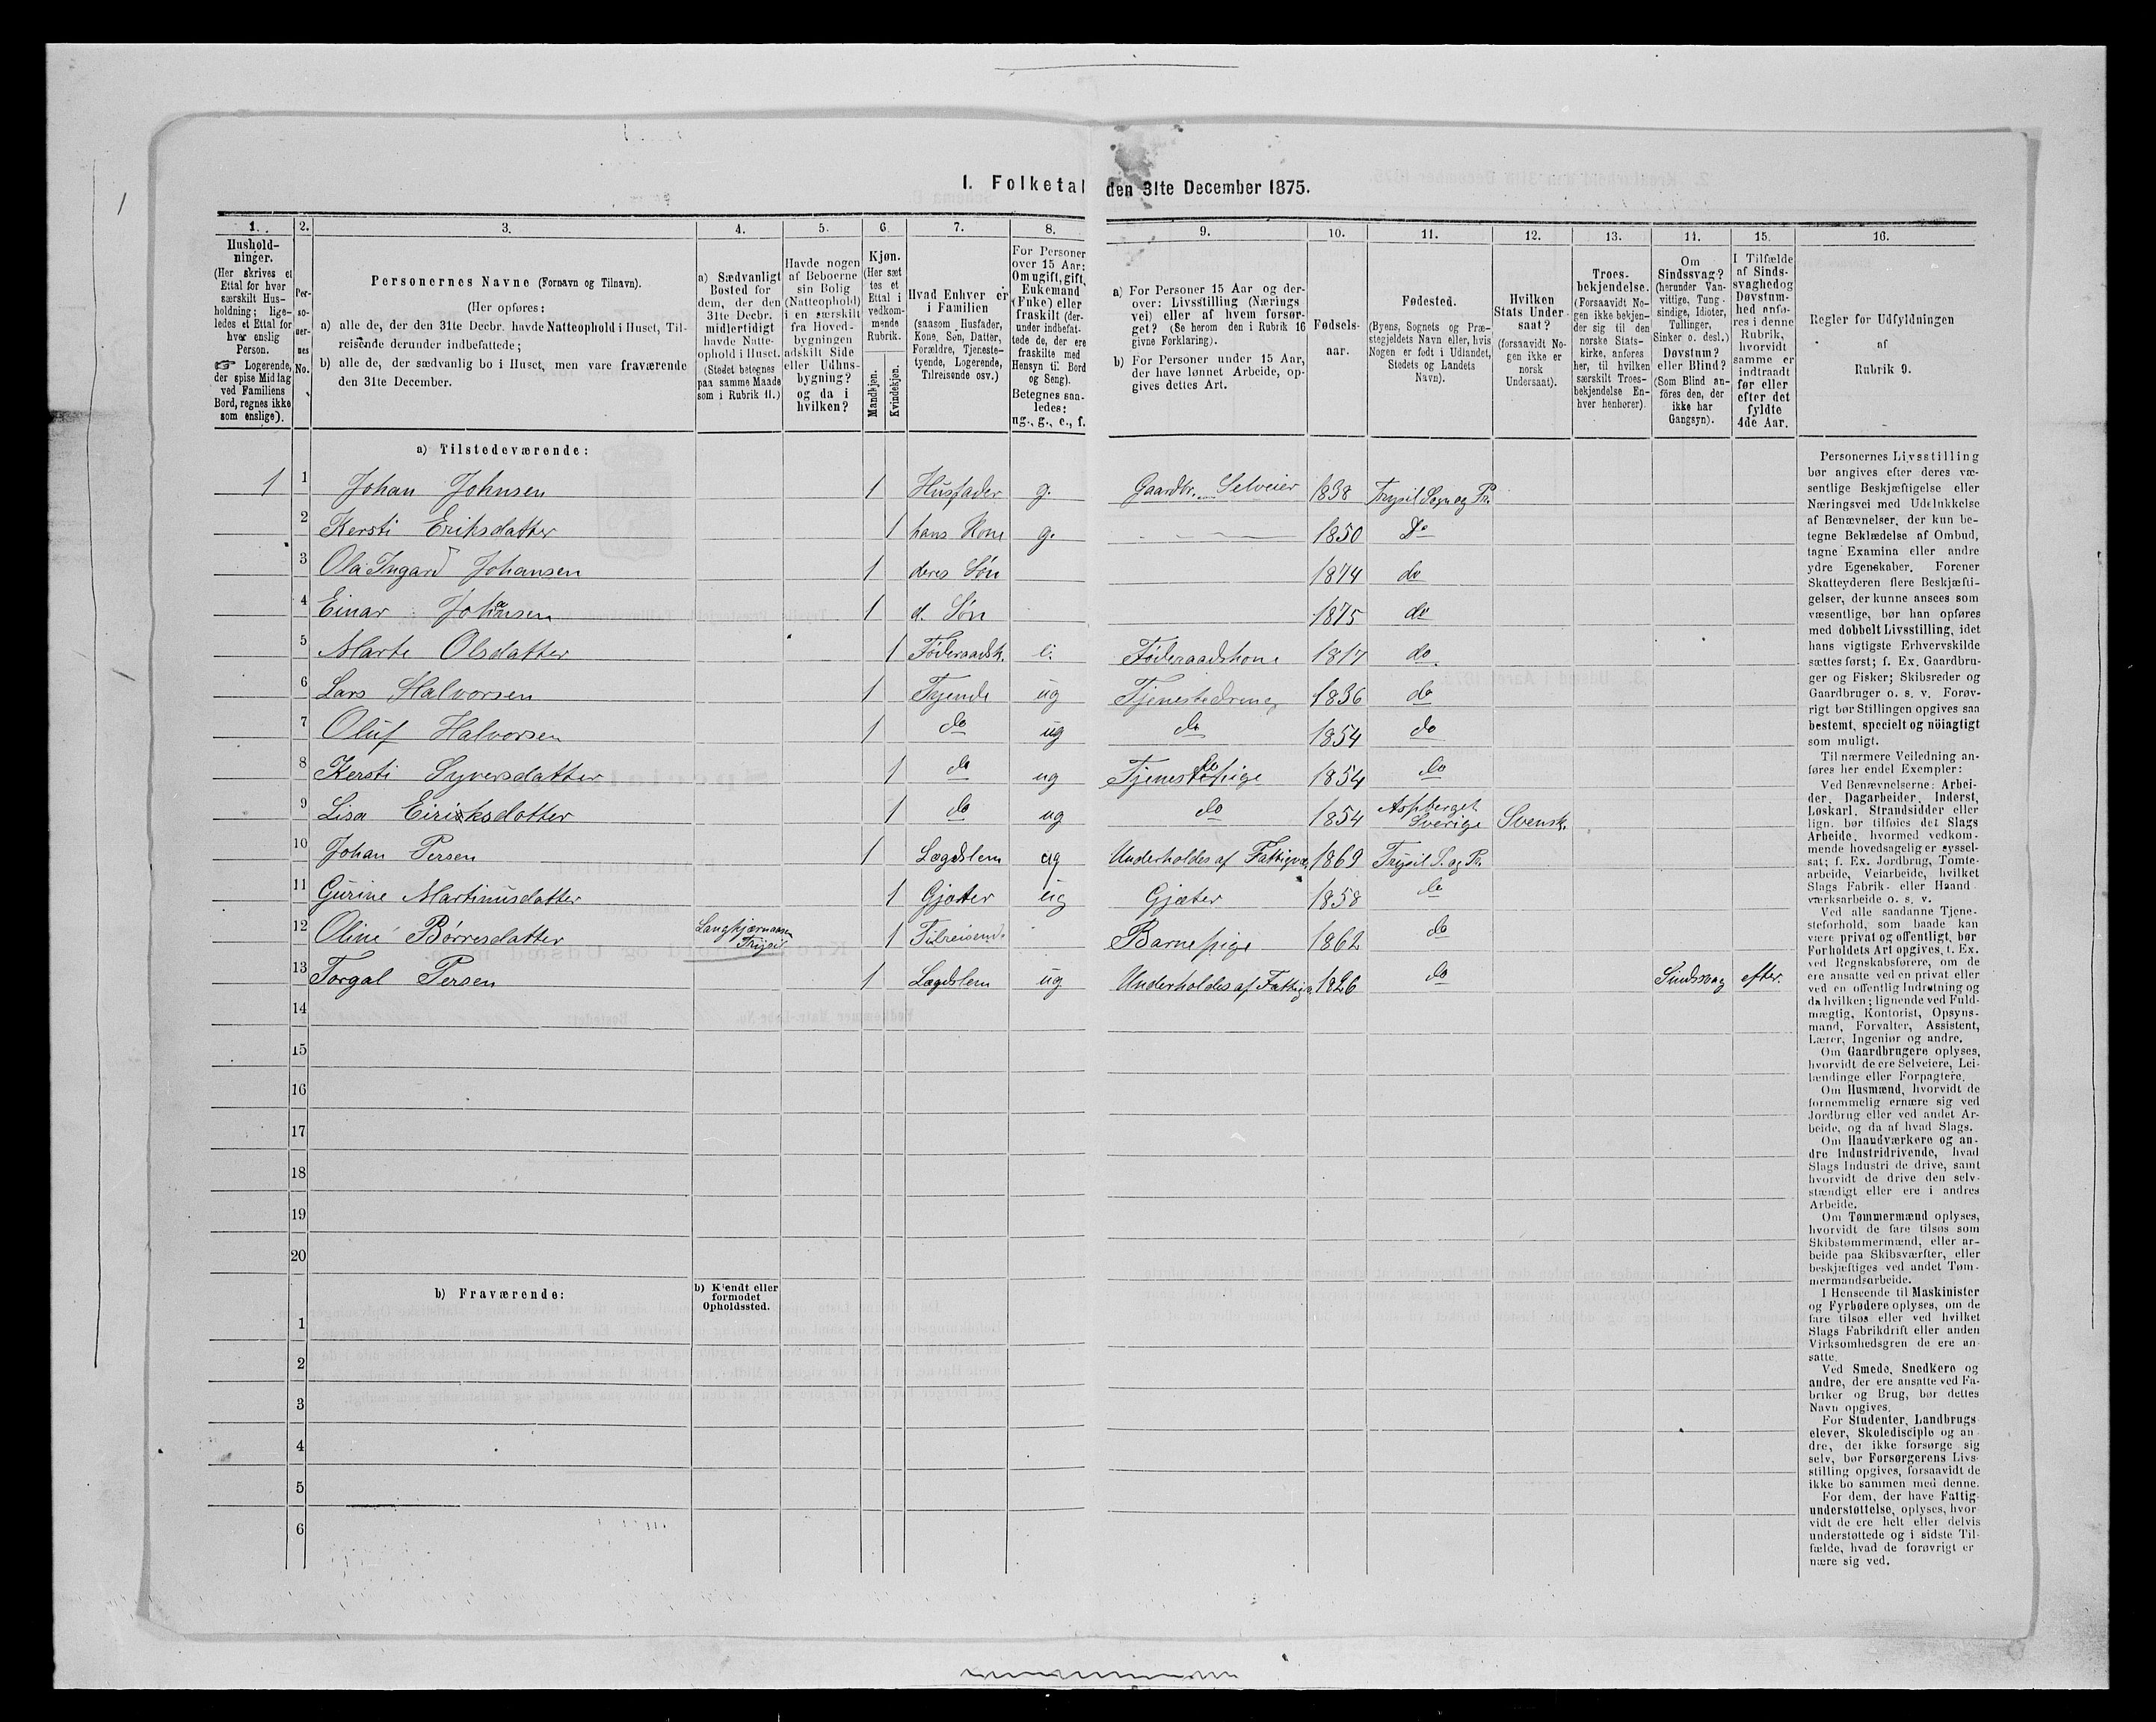 I. Folketal den 31te December 1875.
1. 2. 3. 4. 5. 6. 7. 8. 9. 10. 11. 12. 13. 14. 15. 16.
Hushold-
ninger.
(Her skrives et
Ettal for hver
særskilt Hus-
holdning; lige-
ledes et Ettal for
hver enslig
Person.
☞ Logerende,
der spise Middag
ved Familiens
Bord, regnes ikke
som enslige).
Per-
so-
ner-
nes
No.
Personernes Navne (Fornavn og Tilnavn).
(Her opføres:
a) alle de, der den 31te Decbr. havde Natteophold i Huset, Til-
reisende derunder indbefattede;
b) alle de, der sædvanlig bo i Huset, men vare fraværende
den 31te December.
a) Sædvanligt
Bosted for
dem, der den
31te Decbr.
midlertidigt
havde Natte-
ophold i Huset.
(Stedet betegnes
paa samme Maade
som i Rubrik 11.)
Havde nogen
af Beboerne
sin Bolig
(Natteophold)
i en særskilt
fra Hoved-
bygningen
adskilt Side
eller Udhus-
bygning?
og da i
hvilken?
Kjøn.
(Her sæt
tes et
Ettal i
vedkom-
mende
Rubrik.
Mandkjøn.
Kvindekjøn.
Hvad Enhver er
i Familien
(saasom Husfader,
Kone, Søn, Datter,
Forældre, Tjeneste-
tyende, Logerende,
Tilreisende osv.)
For Personer
over 15 Aar:
Om ugift, gift,
Enkemand
(Enke) eller
fraskilt (der-
under indbefat-
tede de, der ere
fraskilte med
Hensyn til Bord
og Seng).
Betegnes saa-
ledes:
ug., g., e., f.
a) For Personer 15 Aar og der-
over: Livsstilling (Nærings
vei) eller af hvem forsør-
get? (Se herom den i Rubrik 16
givne Forklaring).
b) For Personer under 15 Aar,
der have lønnet Arbeide, op-
gives dettes Art.
Fødsels-
aar.
Fødested.
(Byens, Sognets og Præ-
stegjeldets Navn eller, hvis
Nogen er født i Udlandet,
Stedets og Landets
Navn).
Hvilken
Stats Under
saat?
(forsaavidt No-
gen ikke er
norsk
Undersaat).
Troes-
bekjendelse.
(Forsaavidt No-
gen ikke bekjen-
der sig til den
norske Stats-
kirke, anføres
her, til hvilken
særskilt Troes-
bekjendelse En-
hver henhører).
Om
Sindssvag?
(herunder Van-
vittige, Tung-
sindige, Idioter,
Tullinger,
Sinker o. desl.)
Døvstum?
eller Blind?
(Som Blind an-
føres den, der
ikke har
Gangsyn).
I Tilfælde
af Sinds-
svaghed og
Døvstum-
hed anfø-
res i denne
Rubrik,
hvorvidt
samme er
indtraadt
før eller
efter det
fyldte
4de Aar.
Regler for Udfyldningen
af
Rubrik 9.
a) Tilstedeværende:
1 1 Johan Johnsen 1 Husfader g. Gaardbr. Selveier 1838 Trysil Sogn og Pr.
2 Kersti Eriksdatter 1 hans Kone g. 1850 Do
3 Ola Ingard Johansen 1 deres Søn 1874 do
4 Einar Johansen 1 d. Søn 1875 do
5 Marte Olsdatter 1 Føderaadsk. e. Føderaadskone 1817 do
6 Lars Halvorsen 1 Tyende ug Tjenestedreng 1836 do
7 Oluf Halvorsen 1 do ug do 1854 do
8 Kersti Syversdatter 1 do ug Tjenestepige 1854 do
9 Lisa Eiriksdatter 1 do ug do 1854 Aspberget
Sverige Svensk.
10 Johan Persen 1 Lægdslem ug Underholdes af Fattigv. 1869 Trysil S. og Pr.
11 Gurine Martinusdatter 1 Gjæter ug Gjæter 1858 do
12 Oline Børresdatter Langkjærnaasen
Trysil 1 Tilreisende Barnepige 1862 do
13 Torgal Persen 1 Lægdslem ug Underholdes af Fattigv. 1826 do Sindssvag efter.
14
15
16
17
18
19
20
b) Fraværende:
b) Kjendt eller
formodet
Opholdssted.
1
2
3
4
5
6
Personernes Livsstilling
bør angives efter deres væ-
sentlige Beskjæftigelse eller
Næringsvei med Udelukkelse
af Benævnelser, der kun be-
tegne Beklædelse af Ombud,
tagne Examina eller andre
ydre Egenskaber. Forener
Skatteyderen flere Beskjæfti-
gelser, der kunne ansees som
væsentlige, bør han opføres
med dobbelt Livsstilling, idet
hans vigtigste Erhvervskilde
sættes først; f. Ex. Gaardbru-
ger og Fisker; Skibsreder og
Gaardbruger o. s. v. Forøv-
rigt bør Stillingen opgives saa
bestemt, specielt og nöiagtigt
som muligt.
Til nærmere Veiledning an-
føres her endel Exempler:
Ved Benævnelserne: Arbei-
der, Dagarbeider, Inderst,
Løskarl, Strandsidder eller
lign. bør tilføies det Slags
Arbeide, hvormed vedkom-
mende hovedsagelig er syssel-
sat; f. Ex. Jordbrug, Tomte-
arbeide, Veiarbeide, hvilket
Slags Fabrik- eller Haand-
værksarbeide o. s. v.
Ved alle saadanne Tjene-
steforhold, som baade kan
være privat og offentligt, bør
Forholdets Art opgives, f. Ex.
ved Regnskabsførere, om de
ere ansatte ved en privat eller
ved en offentlig Indretning og
da hvilken; lignende ved Fuld-
mægtig, Kontorist, Opsyns-
mand, Forvalter, Assistent,
Lærer, Ingeniør og andre.
Om Gaardbrugere oplyses,
hvorvidt de ere Selveiere, Lei-
lændinge eller Forpagtere.
Om Husmænd, hvorvidt de
fornemmelig ernære sig ved
Jordbrug eller ved andet Ar-
beide, og da af hvad Slags.
Om Haandværkere og an-
dre Industridrivende, hvad
Slags Industri de drive, samt
hvorvidt de drive den selv-
stændigt eller ere i andres
Arbeide.
Om Tømmermænd oplyses,
hvorvidt de fare tilsøs som
Skibstømmermænd, eller ar-
beide paa Skibsværfter, eller
beskjæftiges ved andet Tøm-
mermandsarbeide.
I Henseende til Maskinister
og Fyrbødere oplyses, om de
fare tilsøs eller ved hvilket
Slags Fabrikdrift eller anden
Virksomhedsgren de ere an-
satte.
Ved Smede, Snedkere og
andre, der ere ansatte ved Fa-
briker og Brug, bør dettes
Navn opgives.
For Studenter, Landbrugs-
elever, Skoledisciple og an-
dre, der ikke forsørge sig
selv, bør Forsørgerens Livs-
stilling opgives, forsaavidt de
ikke bo sammen med denne.
For dem, der have Fattig-
understøttelse, oplyses, hvor-
vidt de ere helt eller delvis
understøttede og i sidste Til-
fælde, hvad de forøvrigt er
nære sig ved.